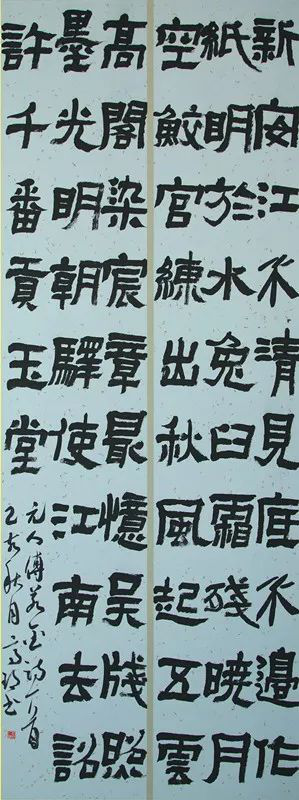 新安江水清見底水邊作
紙明於水兔臼霜殘曉月
空鮫宮練出秋風起五雲
高閣染宸章最憶吳牋照
墨光明朝驛使江南去詔
許千番貢玉堂
元人傅若金詩一首
亥秋月 書